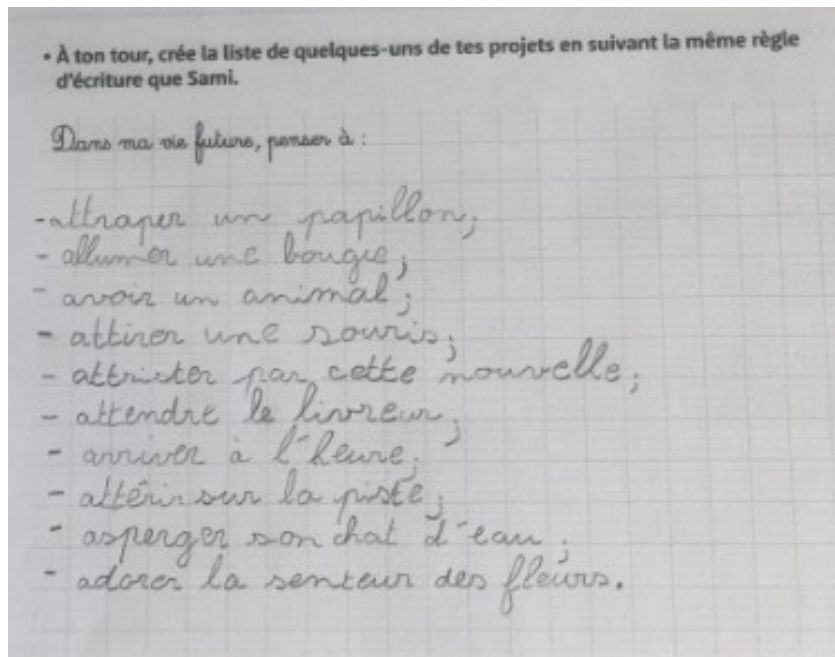 • À ton tour, crée la liste de quelques-uns de tes projets en suivant la même règle
d'écriture que Sami.
Dans ma vie future, penser à :
- attraper un papillon;
- allumer une bougie;
- avoir un animal;
- attirer une souris;
- attrister par cette nouvelle;
- attendre le livreur;
- arriver à l'heure;
- attérir sur la piste;
- asperger son chat d'eau;
- adorer la senteur des fleurs.